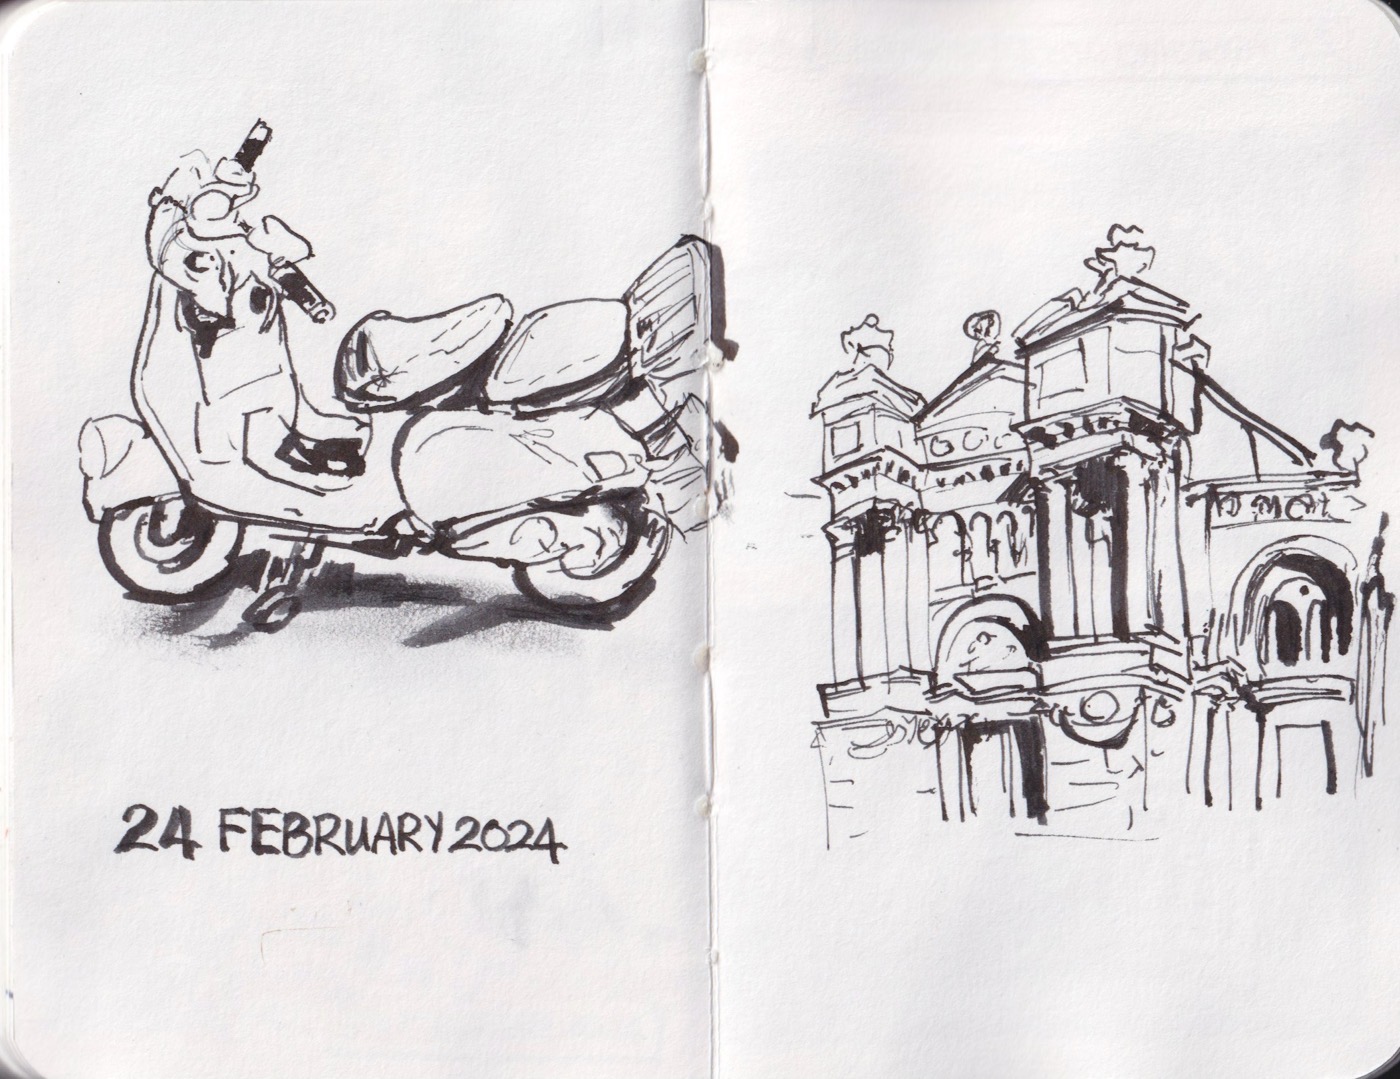 24 FEBRUARY 2024